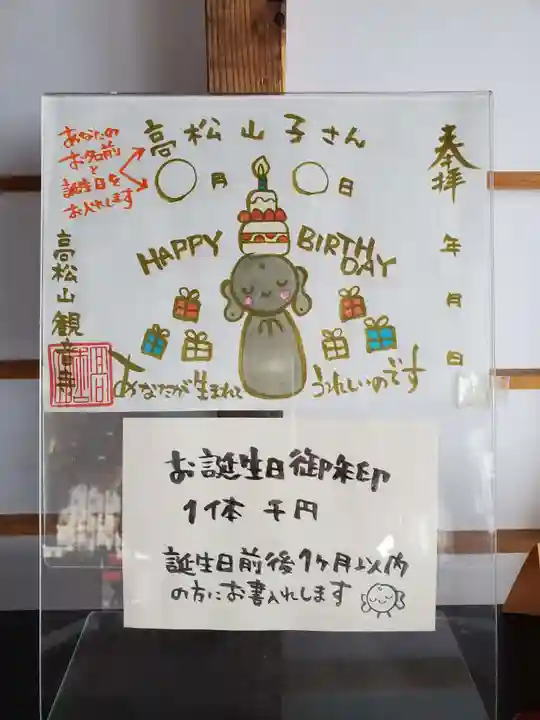 奉拝
年 月 日
高松山子さん
○月 ○日
あなたの
お名前
と
誕生日を
お入れします
HAPPY BIRTH
DAY
高松山観音寺
あなたが生まれて うれしいのです
お誕生日御朱印
1体 千円
誕生日前後1ヶ月以内
の方にお書入れします